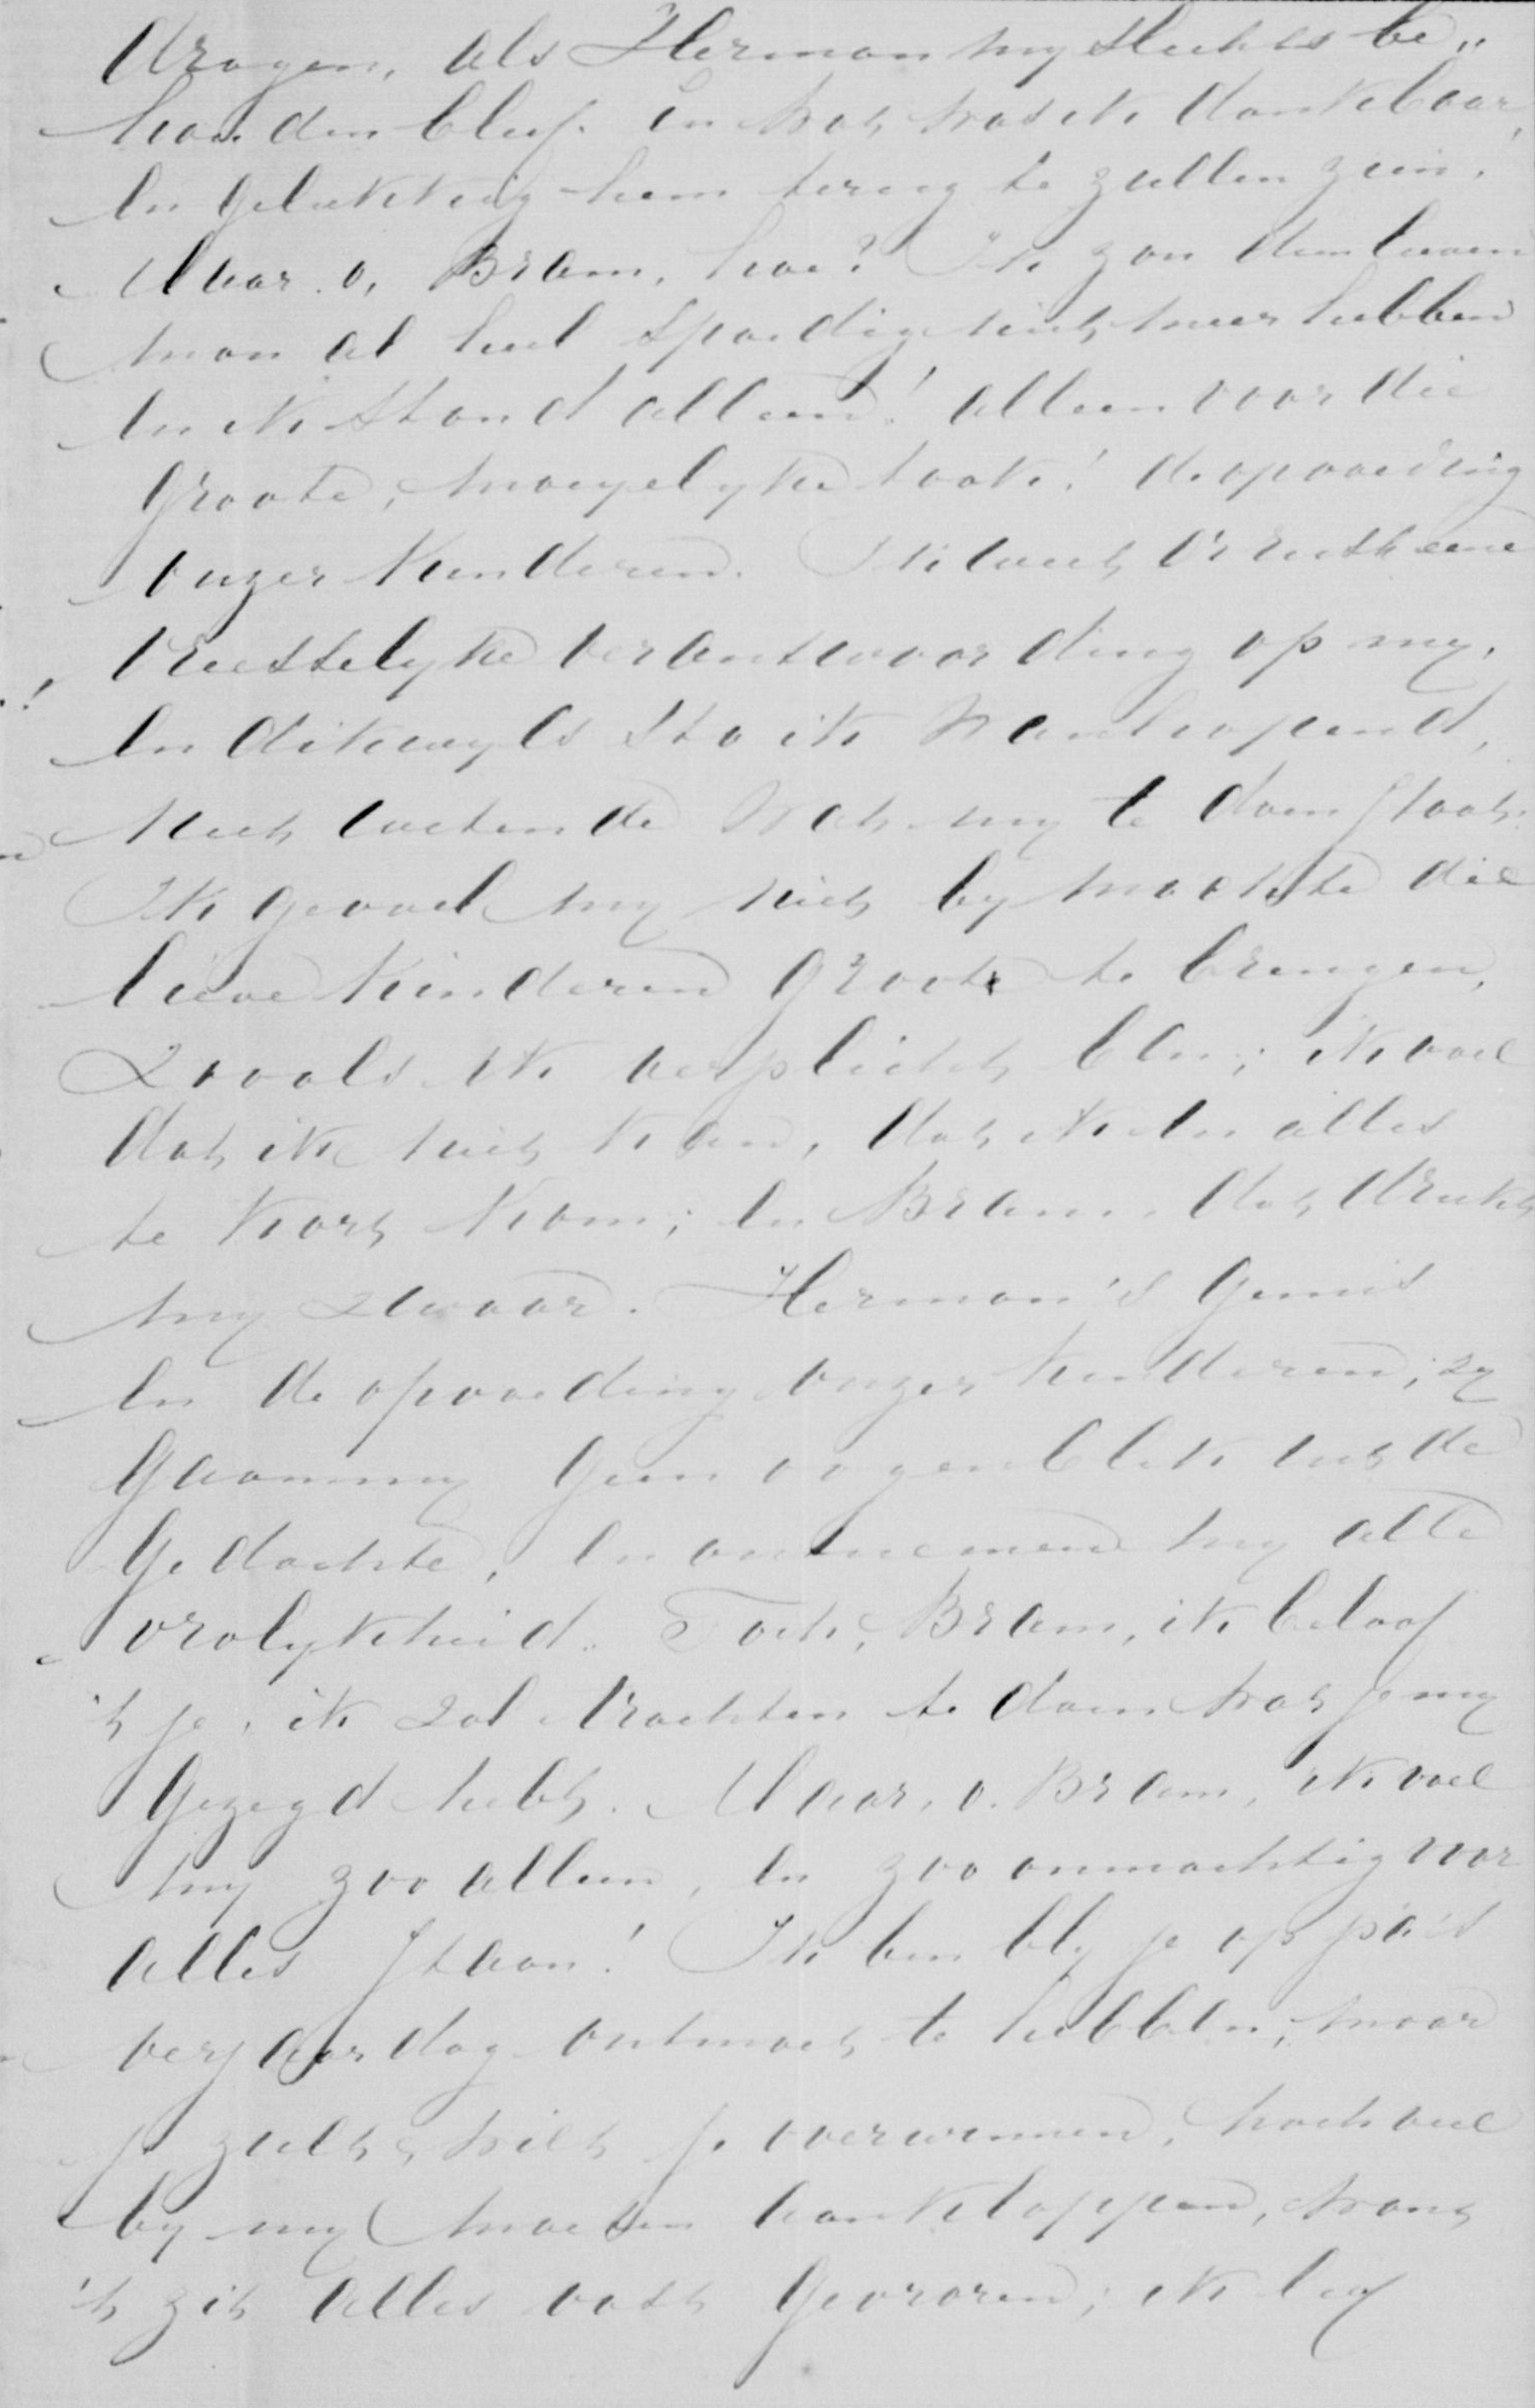 dragen, als Herman my slechts be„
houden bleef. En wat was ik dankbaar,
en gelukkig hem terug te zullen zien!
Maar o, Bram, hoe? Ik zou dien lieven
man al heel spoedig niet meer hebben
en ik stond alleen! alleen voor die
groote, moeyelyke taak! de opvoeding
onzer kinderen. Ik weet er rust eene
vreesselyke verantwoording op my,
en dikwyls sta ik wanhopend,
niet wetende wat my te doen staat.
Ik gevoel my niet by machte die
lieve kinderen groot te brengen,
zooals ik verplicht ben; ik voel
dat ik niet kan, dat ik in alles
te kort kom; en Bram, dat drukt
my zwaar. Herman's gemis
en de opvoeding onzer kinderen; zy
gaan my geen oogenblik uit de
gedachte, en ontnemen my alle
vrolykheid. Toch, Bram, ik beloof
't je, ik zal trachten te doen wat je my
gezegd hebt. Maar, o. Bram, ik voel
my zoo alleen, en zoo onmachtig voor
alles staan! Ik ben bly je op pa's
verjaardag ontmoet te hebben; maar
je zult, wilt je overwinnen, noch veel
by my moeten aankloppen, want
't zit alles vast gevroren; ik leef